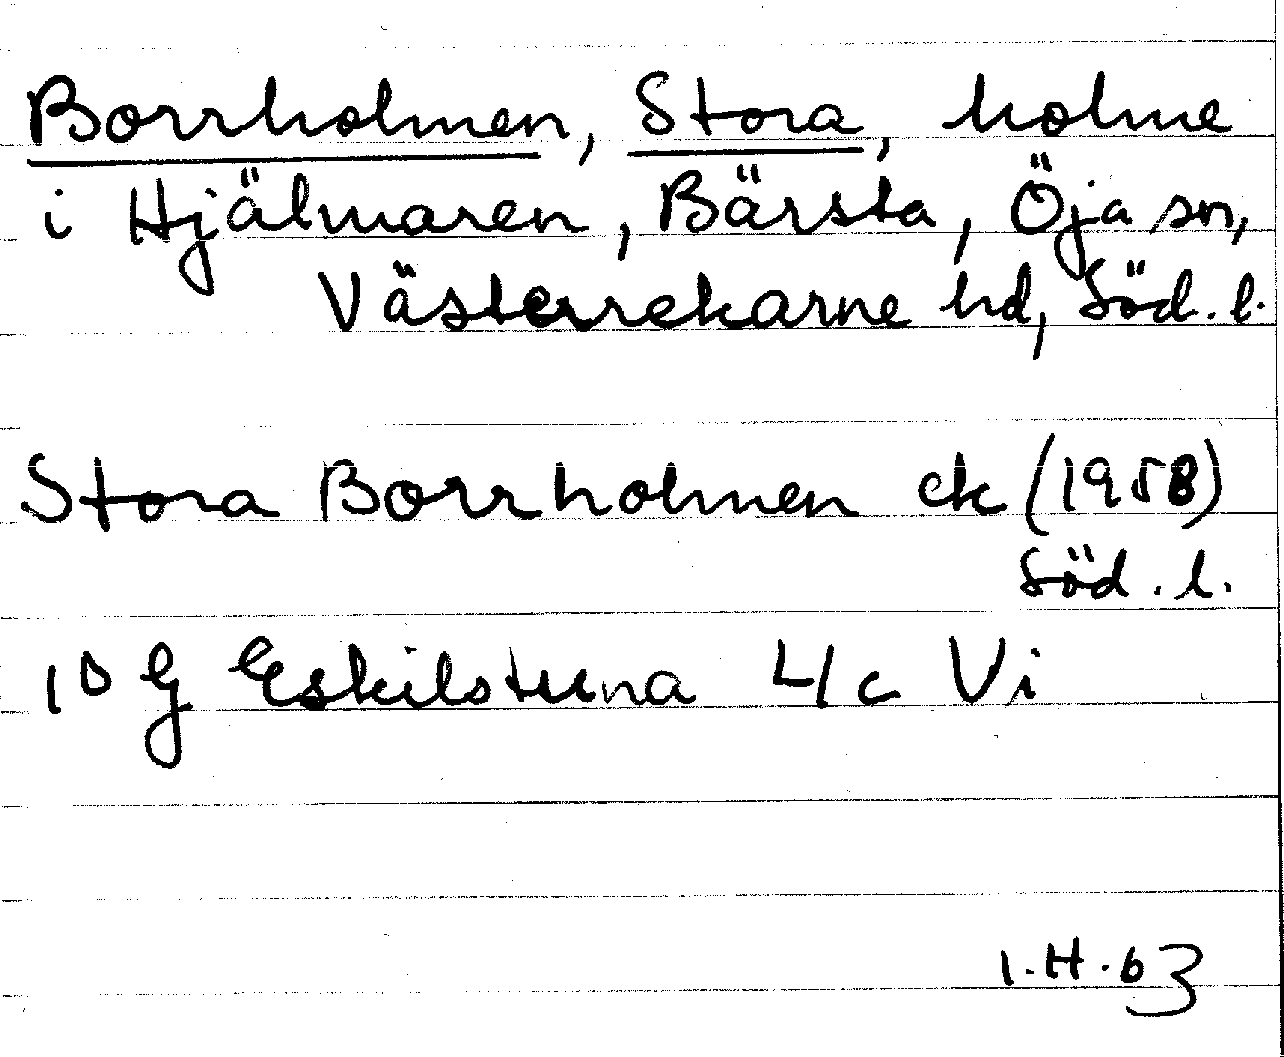 Borrholmen, Stora, holme
i Hjälmaren, Bärsta, Öja sn,
Västerrekarne hd, Söd. l.
Stora Borrholmen ek (1958)
Söd. l.
10 G Eskilstuna 4/c Vi
1.H.63